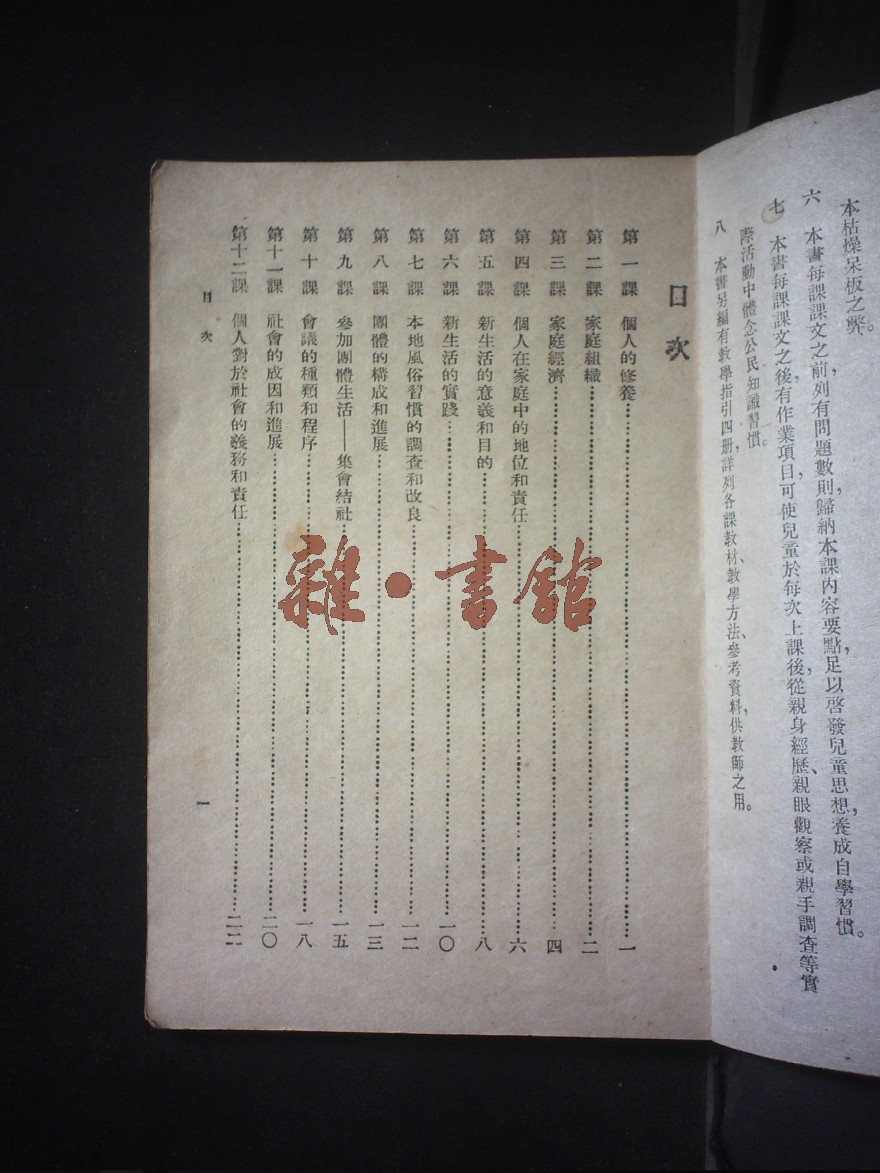 本枯燥呆板之弊。
六 本書每課課文之前，列有問題數則，歸納本課內容要點，足以啓發兒童思想，養成自學習慣。
七 本書每課課文之後，有作業項目，可使兒童於每次上課後，從親身經歷、親眼觀察或親手調查等實
際活動中體念公民知識習慣。
八 本書另編有教學指引四册，詳列各課教材、教學方法、參考資料，供教師之用。
目次
第一課 個人的修養……一
第二課 家庭組織……二
第三課 家庭經濟……四
第四課 個人在家庭中的地位和責任……六
第五課 新生活的意義和目的……八
第六課 新生活的實踐……一〇
第七課 本地風俗習慣的調查和改良……一二
第八課 團體的構成和進展……一三
第九課 參加團體生活——集會結社……一五
第十課 會議的種類和程序……一八
第十一課 社會的成因和進展……二〇
第十二課 個人對於社會的義務和責任……二二
目次
一
雜·書館